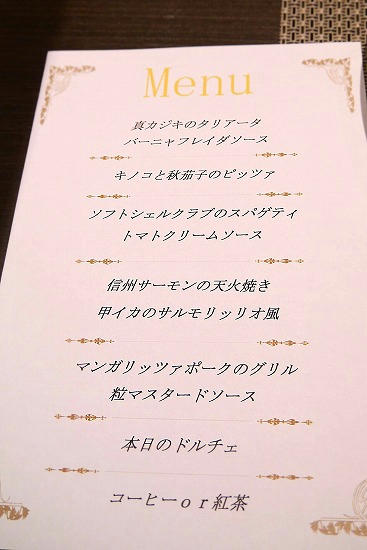 Menu
真カジキのタリアータ
バーニャフレイダソース
キノコと秋茄子のピッツァ
ソフトシェルクラブのスパゲティ
トマトクリームソース
信州サーモンの天火焼き
甲イカのサルモリッリオ風
マンガリッツァポークのグリル
粒マスタードソース
本日のドルチェ
コーヒーor紅茶